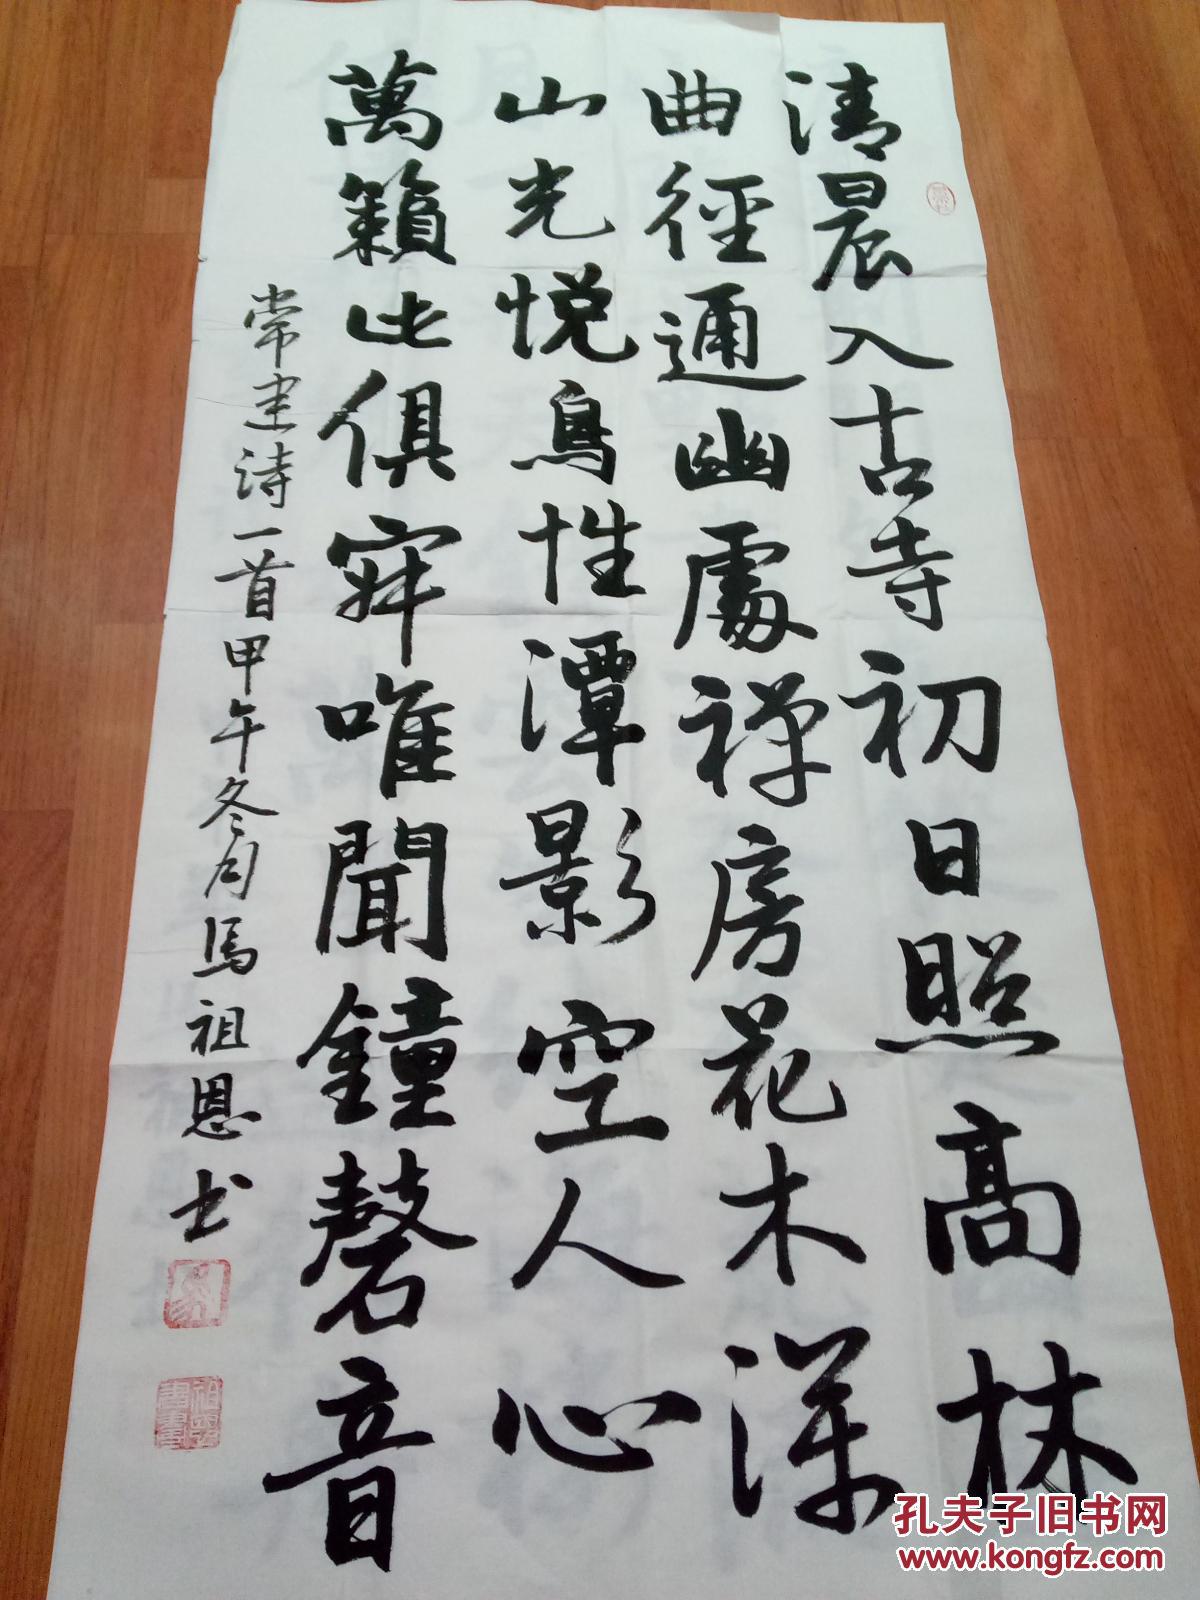 清晨入古寺初日照高林
曲徑通幽處禅房花木深
山光悦鳥性潭影空人心
萬籟此俱寂唯聞鐘磬音
常建诗一首甲午冬月馬祖恩书
孔夫子旧书网
www.kongfz.com